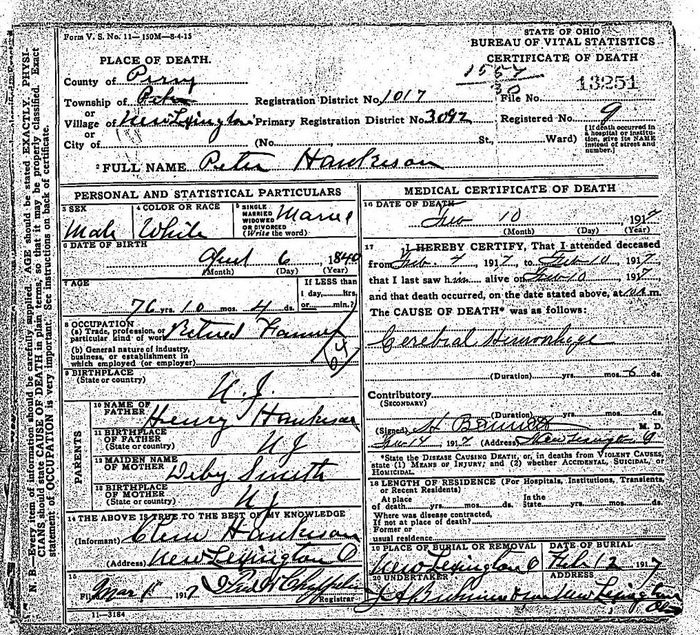 Form V. S. No. 11—150M—8-4-15
STATE OF OHIO
BUREAU OF VITAL STATISTICS
PLACE OF DEATH.
CERTIFICATE OF DEATH
County of Perry
1557
30
Township of
Registration District No. 1017
File No. 13251
or
Village of New Lexington Primary Registration District No. 3092
Registered No. 9
or
City of (No. St., Ward)
(If death occurred in a hospital or institution, give its NAME instead of street and number.)
2 FULL NAME Peter Hankison
PERSONAL AND STATISTICAL PARTICULARS
MEDICAL CERTIFICATE OF DEATH
3 SEX
Male
4 COLOR OR RACE
White
5 SINGLE MARRIED WIDOWED OR DIVORCED
(Write the word)
16 DATE OF DEATH
Feb 10 1917
(Month) (Day) (Year)
6 DATE OF BIRTH
6 1840
(Month) (Day) (Year)
17 I HEREBY CERTIFY, That I attended deceased
from Feb. 7 1917, to Feb 10, 1917
that I last saw him alive on Feb 10 1917
and that death occurred, on the date stated above, at m.
7 AGE
76 yrs. 10 mos. 4 ds.
If LESS than
1 day, hrs.
or min.?
The CAUSE OF DEATH* was as follows:
Cerebral Hemorrhage
8 OCCUPATION
(a) Trade, profession, or
particular kind of work Retired Farmer
(b) General nature of industry,
business, or establishment in
which employed (or employer)
(Duration) yrs. mos. 6 ds.
9 BIRTHPLACE
(State or country)
N. J.
Contributory
(SECONDARY)
(Duration) yrs. mos. ds.
10 NAME OF
FATHER
Henry Hankison
(Signed) M. D.
Feb 14 1917 (Address) New Lexington O
PARENTS
11 BIRTHPLACE
OF FATHER
(State or country)
N J
*State the DISEASE CAUSING DEATH, or, in deaths from VIOLENT CAUSES, state (1) MEANS OF INJURY; and (2) whether ACCIDENTAL, SUICIDAL, or HOMICIDAL.
12 MAIDEN NAME
OF MOTHER
Smith
13 BIRTHPLACE
OF MOTHER
(State or country)
N J
18 LENGTH OF RESIDENCE (For Hospitals, Institutions, Transients, or Recent Residents)
At place of death yrs. mos. ds. In the State yrs. mos. ds.
Where was disease contracted,
If not at place of death?
Former or
usual residence
14 THE ABOVE IS TRUE TO THE BEST OF MY KNOWLEDGE
(Informant) Hankison
(Address) New Lexington O
19 PLACE OF BURIAL OR REMOVAL
New Lexington O
DATE OF BURIAL
Feb 12 1917
15
Filed Mar 1 1917
Registrar
20 UNDERTAKER
ADDRESS
New Lexington
Ohio
11—3184
N. B.—Every item of information should be carefully supplied. AGE should be stated EXACTLY. PHYSICIANS should state CAUSE OF DEATH in plain terms, so that it may be properly classified. Exact statement of OCCUPATION is very important. See instructions on back of certificate.